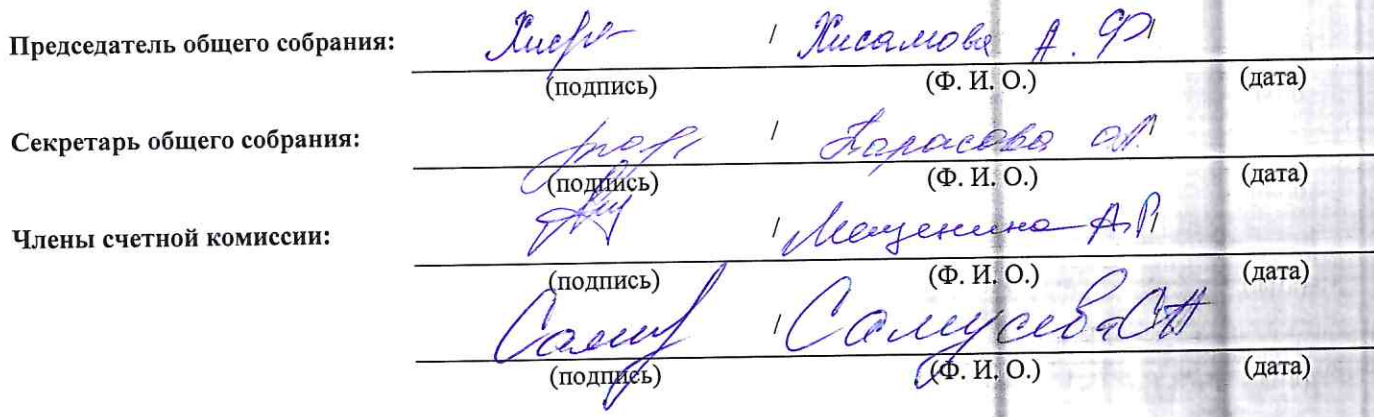 Председатель общего собрания: / Хисамова А. Ф.
(подпись) (Ф. И. О.) (дата)
Секретарь общего собрания: / Тарасова
(подпись) (Ф. И. О.) (дата)
Члены счетной комиссии: / Мещенина А.Р.
(подпись) (Ф. И. О.) (дата)
/ Самусева
(подпись) (Ф. И. О.) (дата)